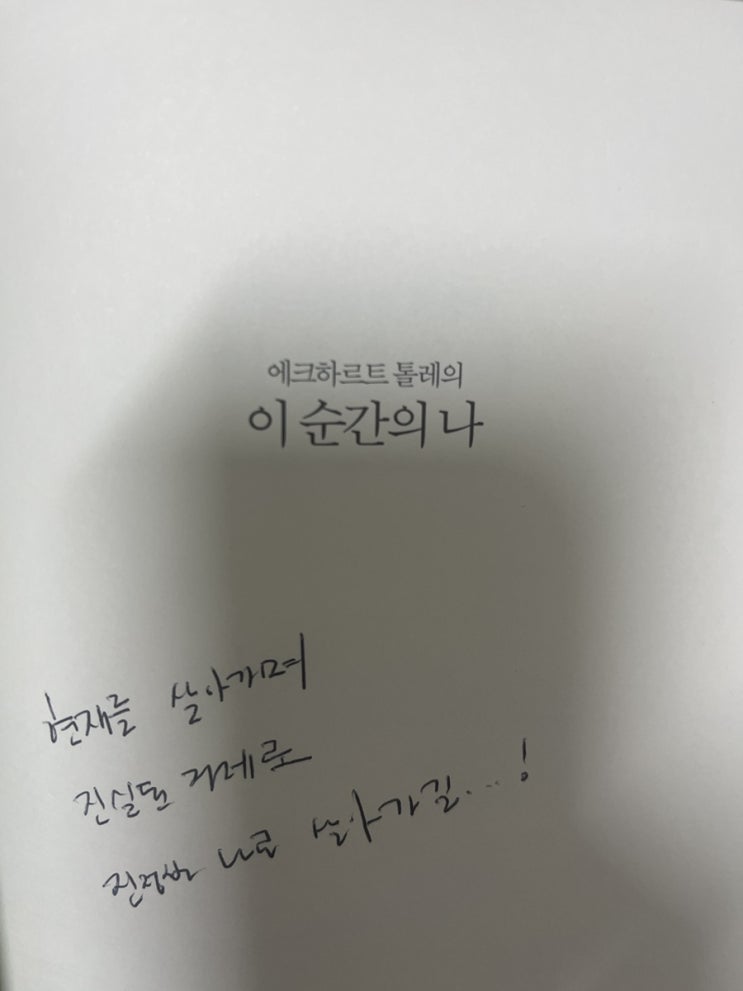 에크하르트 톨레의
이 순간의 나
현재를 살아가며
진실된
진정한 나로 살아가길...!